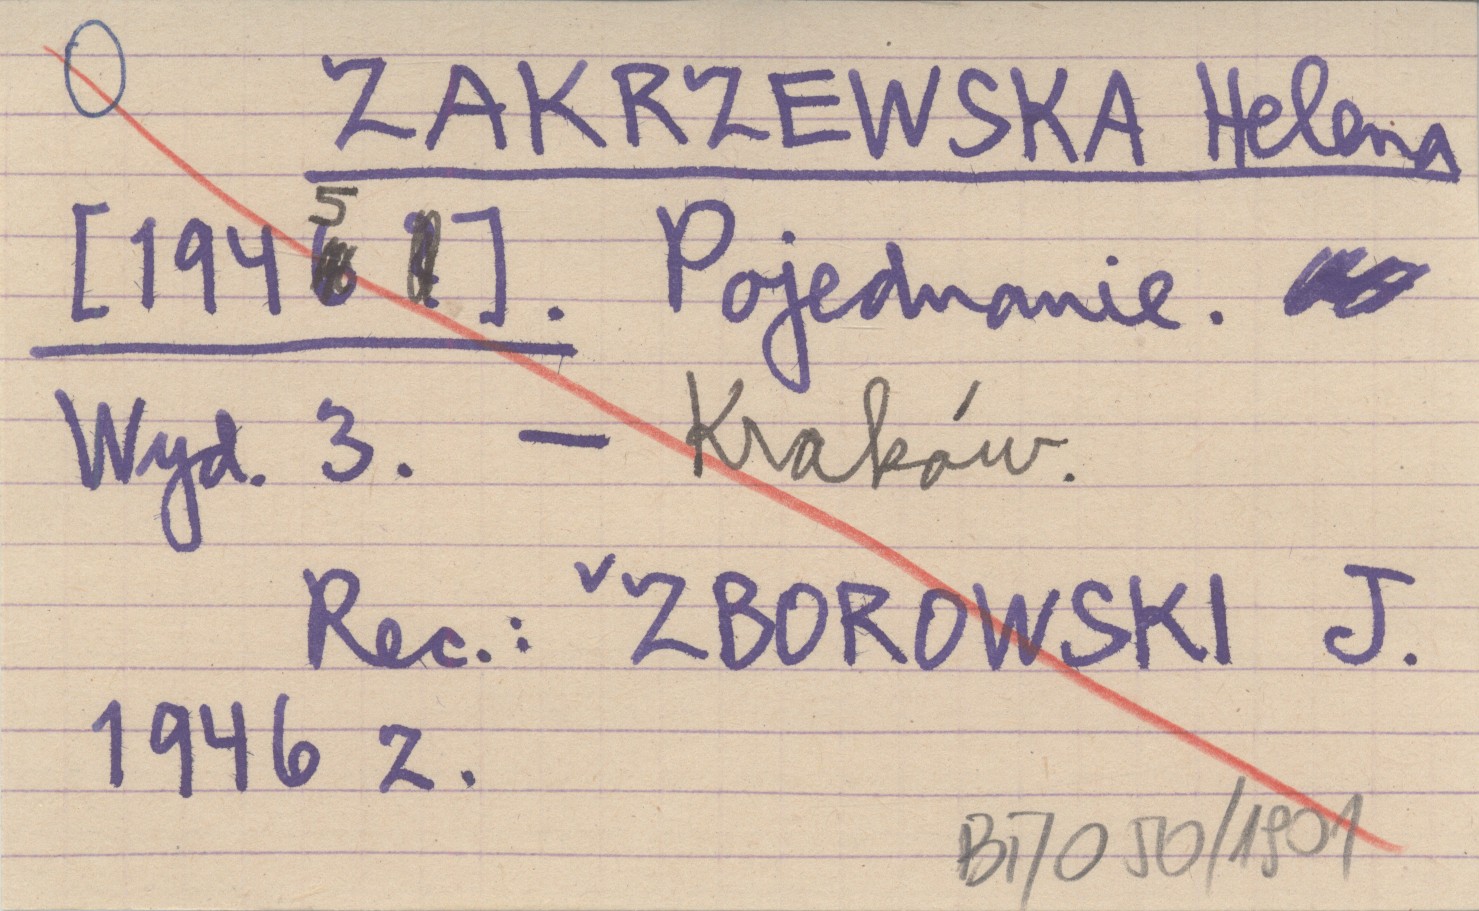 ZAKRZEWSKA Helena
[1945]. Pojednanie.
Wyd. 3. — Kraków.
Rec.: ZBOROWSKI J.
1946 z.
50/1901